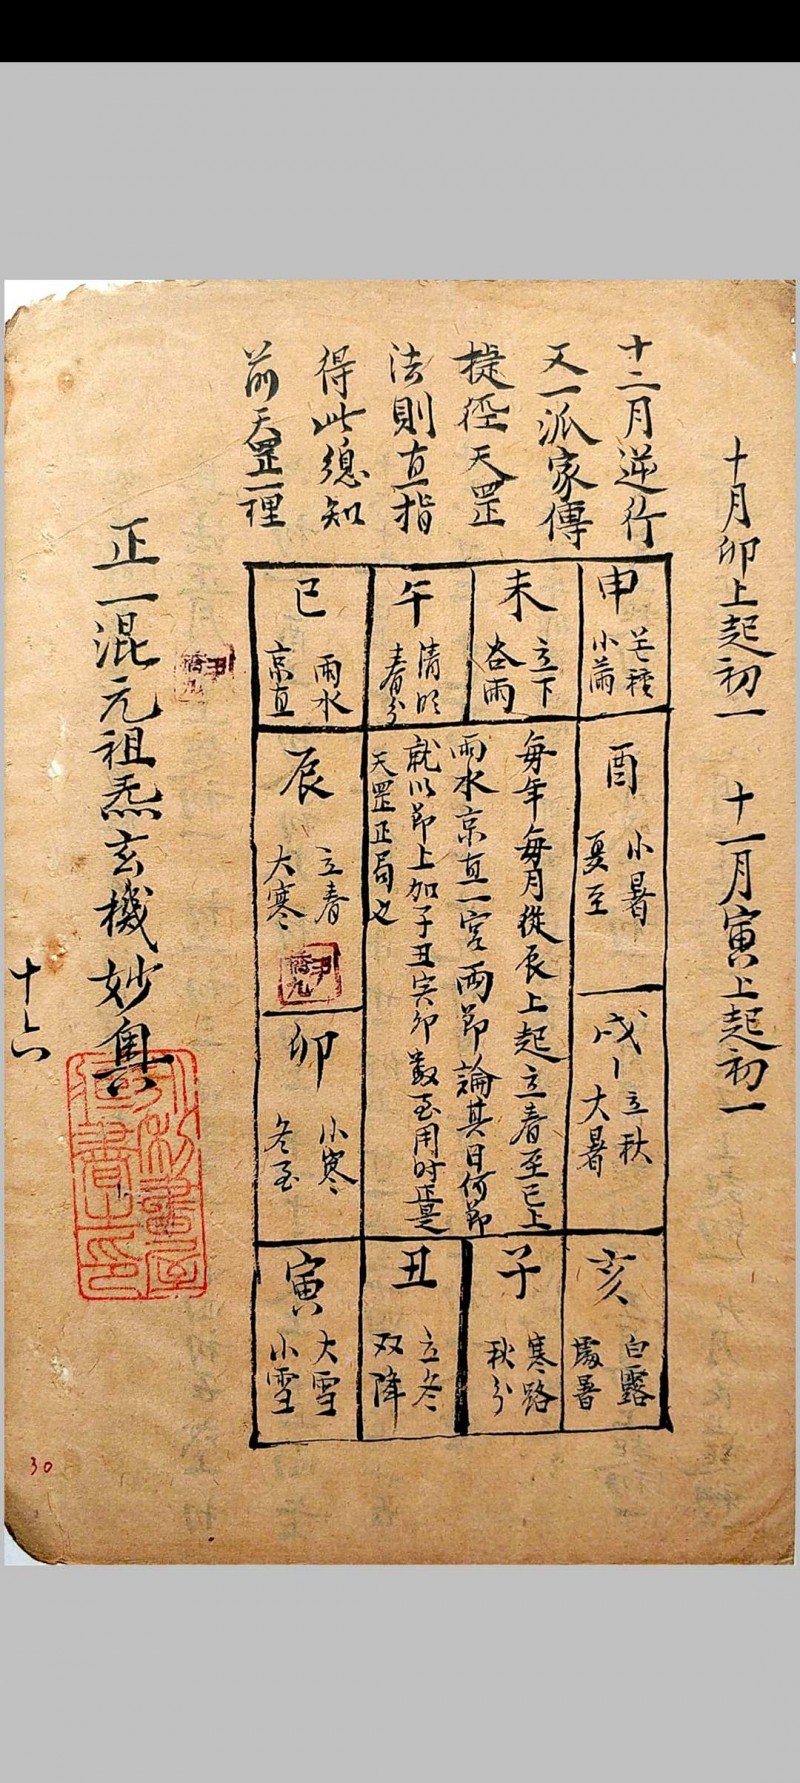 十月卯上起初一　十一月寅上起初一
十二月逆行
又一派家傳
捷徑天罡
法則直指
得此總知
前天罡一理
申
芒種
小滿
未
立下
谷雨
午
清明
春分
巳
雨水
京直
酉
小暑
夏至
每年每月從辰上起立春至巳上
雨水京直一宮兩節論其日何節
就以節上加子丑寅卯數至用时正是
天罡正局也
辰
立春
大寒
戌
立秋
大暑
卯
小寒
冬至
亥
白露
處暑
子
寒路
秋分
丑
立冬
双降
寅
大雪
小雪
正一混元祖炁玄機妙奥
十六
30